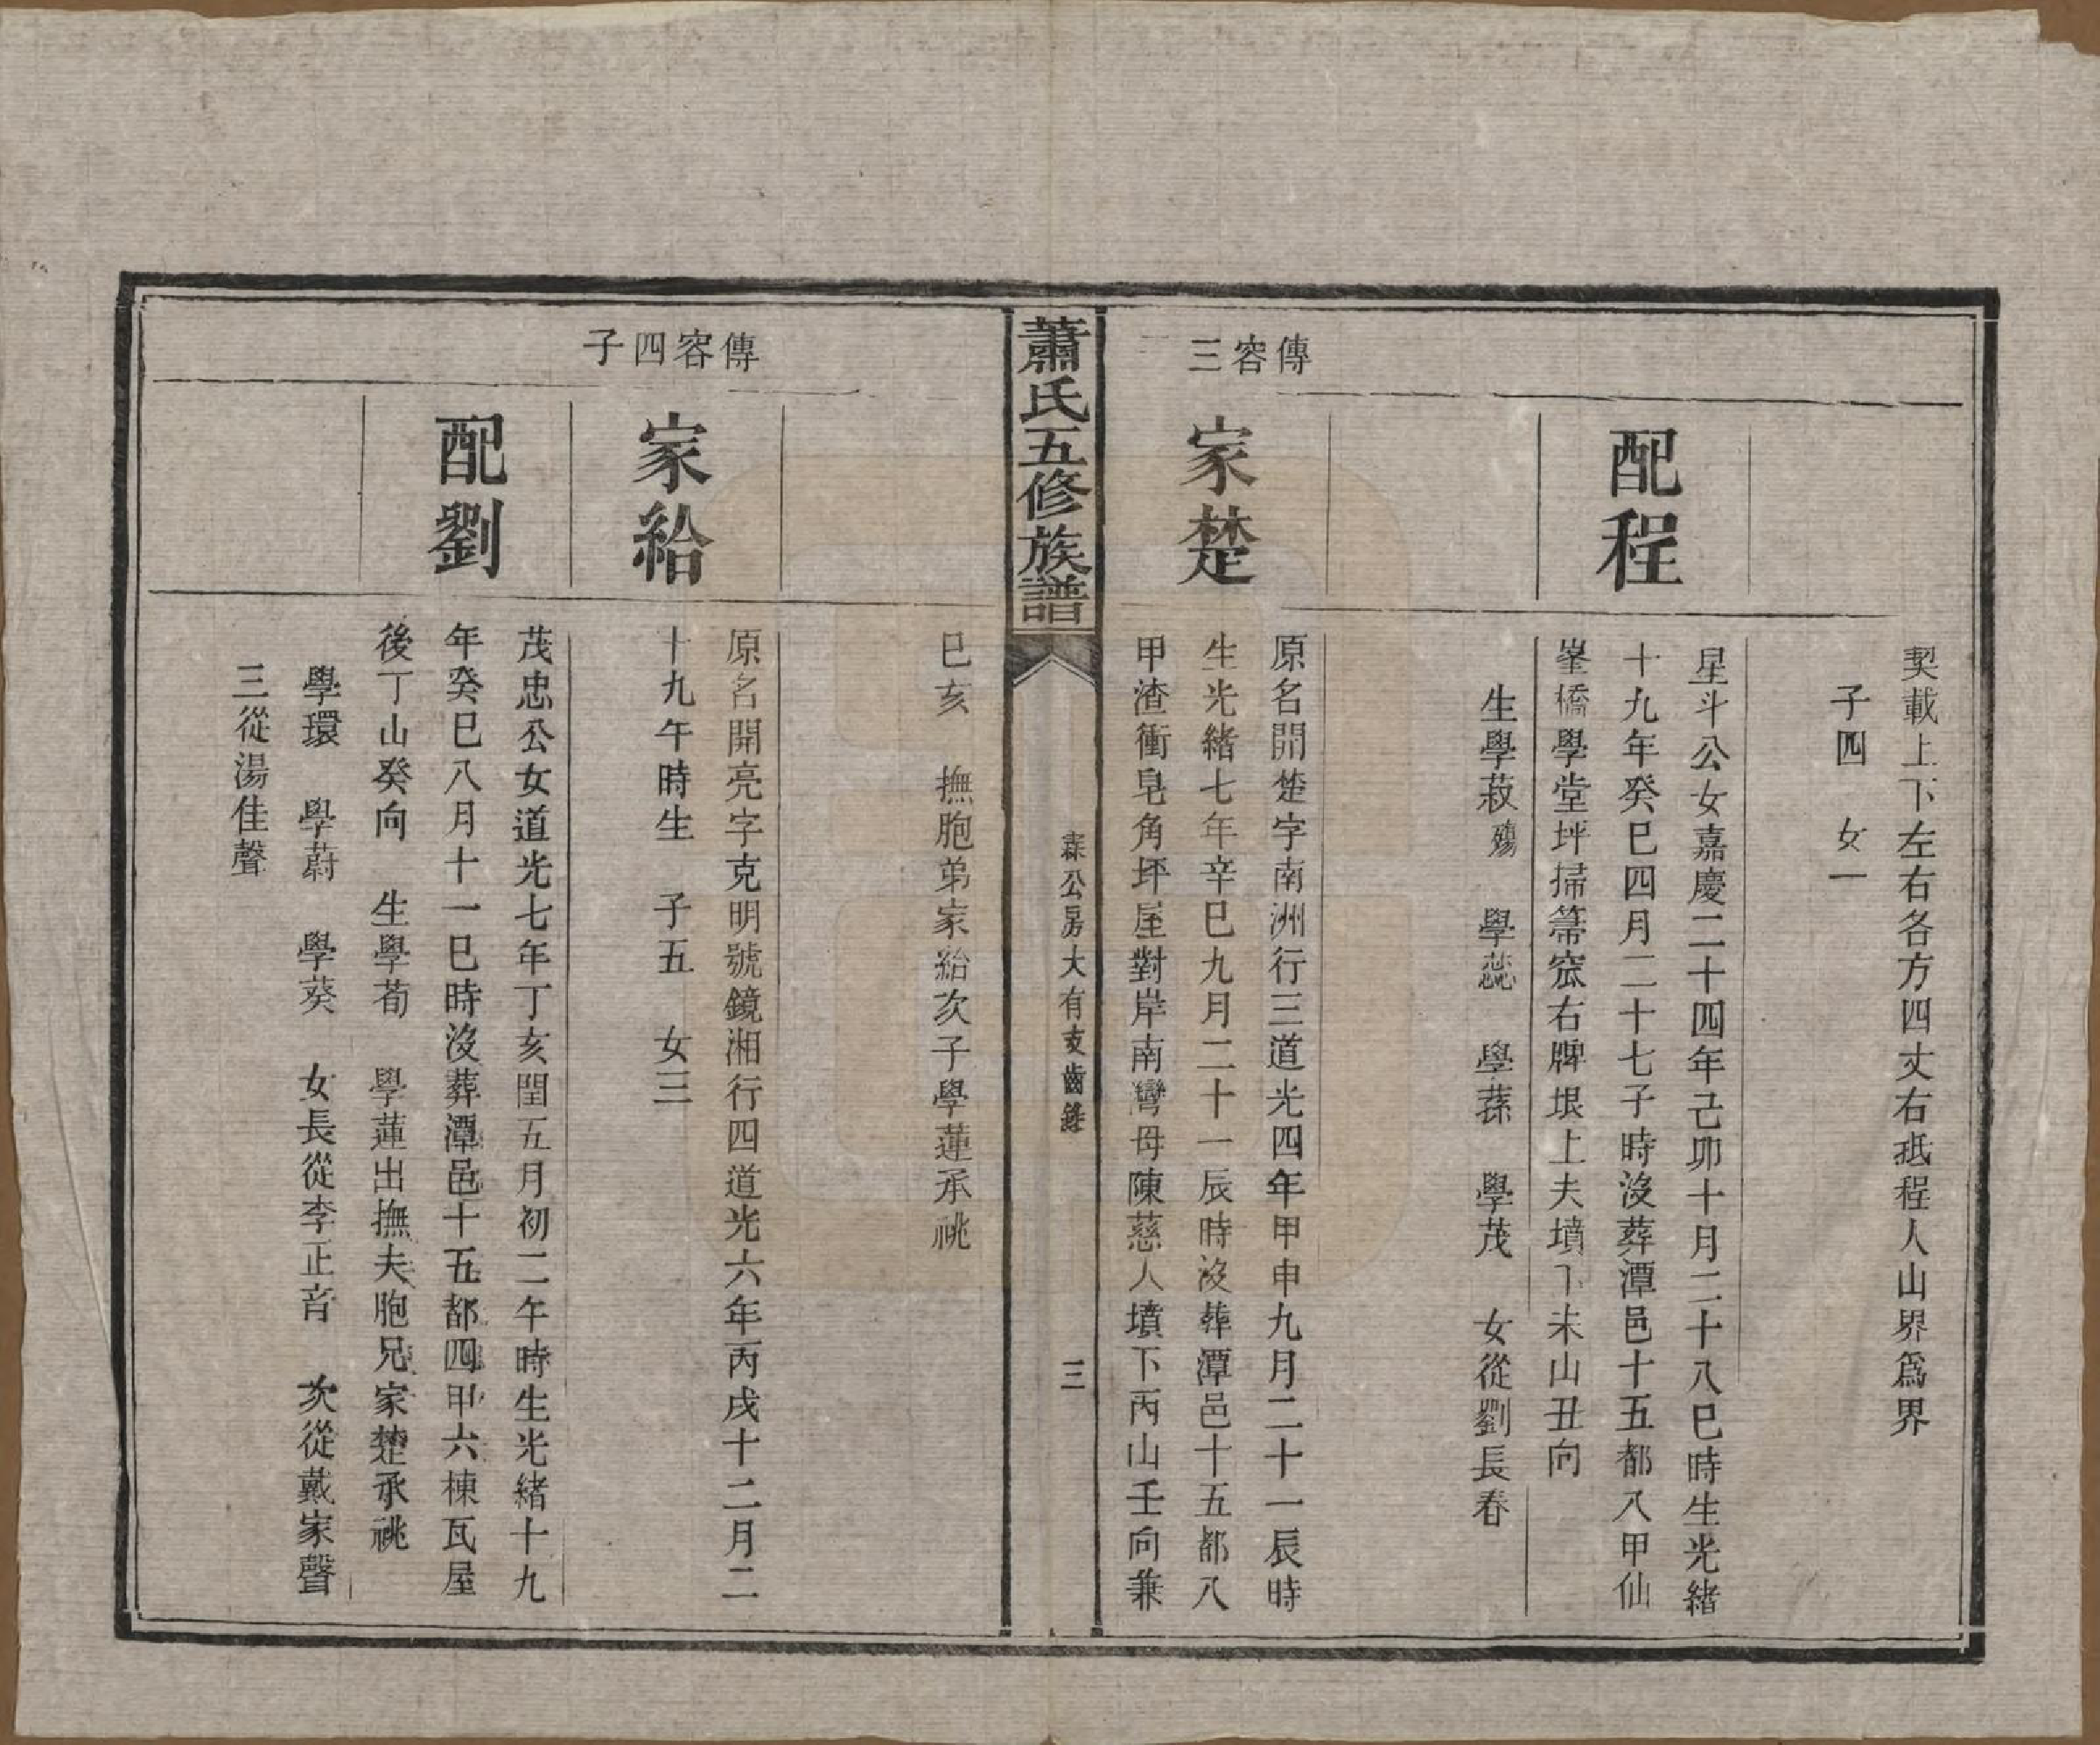 契載上下左右各方四丈右抵程人山界爲界
子四　女一
配程
星斗公女嘉慶二十四年己卯十月二十八巳時生光緒
十九年癸巳四月二十七子時沒葬潭邑十五都八甲仙
峯橋學堂坪掃箒窊右牌垠上夫墳下未山丑向
生學菽殤　學蕊　學蓀　學茂　女從劉長春
傳容三
家楚
原名開楚字南洲行三道光四年甲申九月二十一辰時
生光緒七年辛巳九月二十一辰時沒葬潭邑十五都八
甲渣衝皂角坪屋對岸南灣母陳慈人墳下丙山壬向兼
蕭氏五修族譜
霖公房大有支齒錄
三
巳亥　撫胞弟家給次子學蓮承祧
傳容四子
家給
原名開亮字克明號鏡湘行四道光六年丙戌十二月二
十九午時生　子五　女三
配劉
茂忠公女道光七年丁亥閏五月初二午時生光緒十九
年癸巳八月十一巳時沒葬潭邑十五都四甲六棟瓦屋
後丁山癸向　生學荀　學蓮出撫夫胞兄家楚承祧
學環　學蔚　學葵　女長從李正音　次從戴家聲
三從湯佳聲